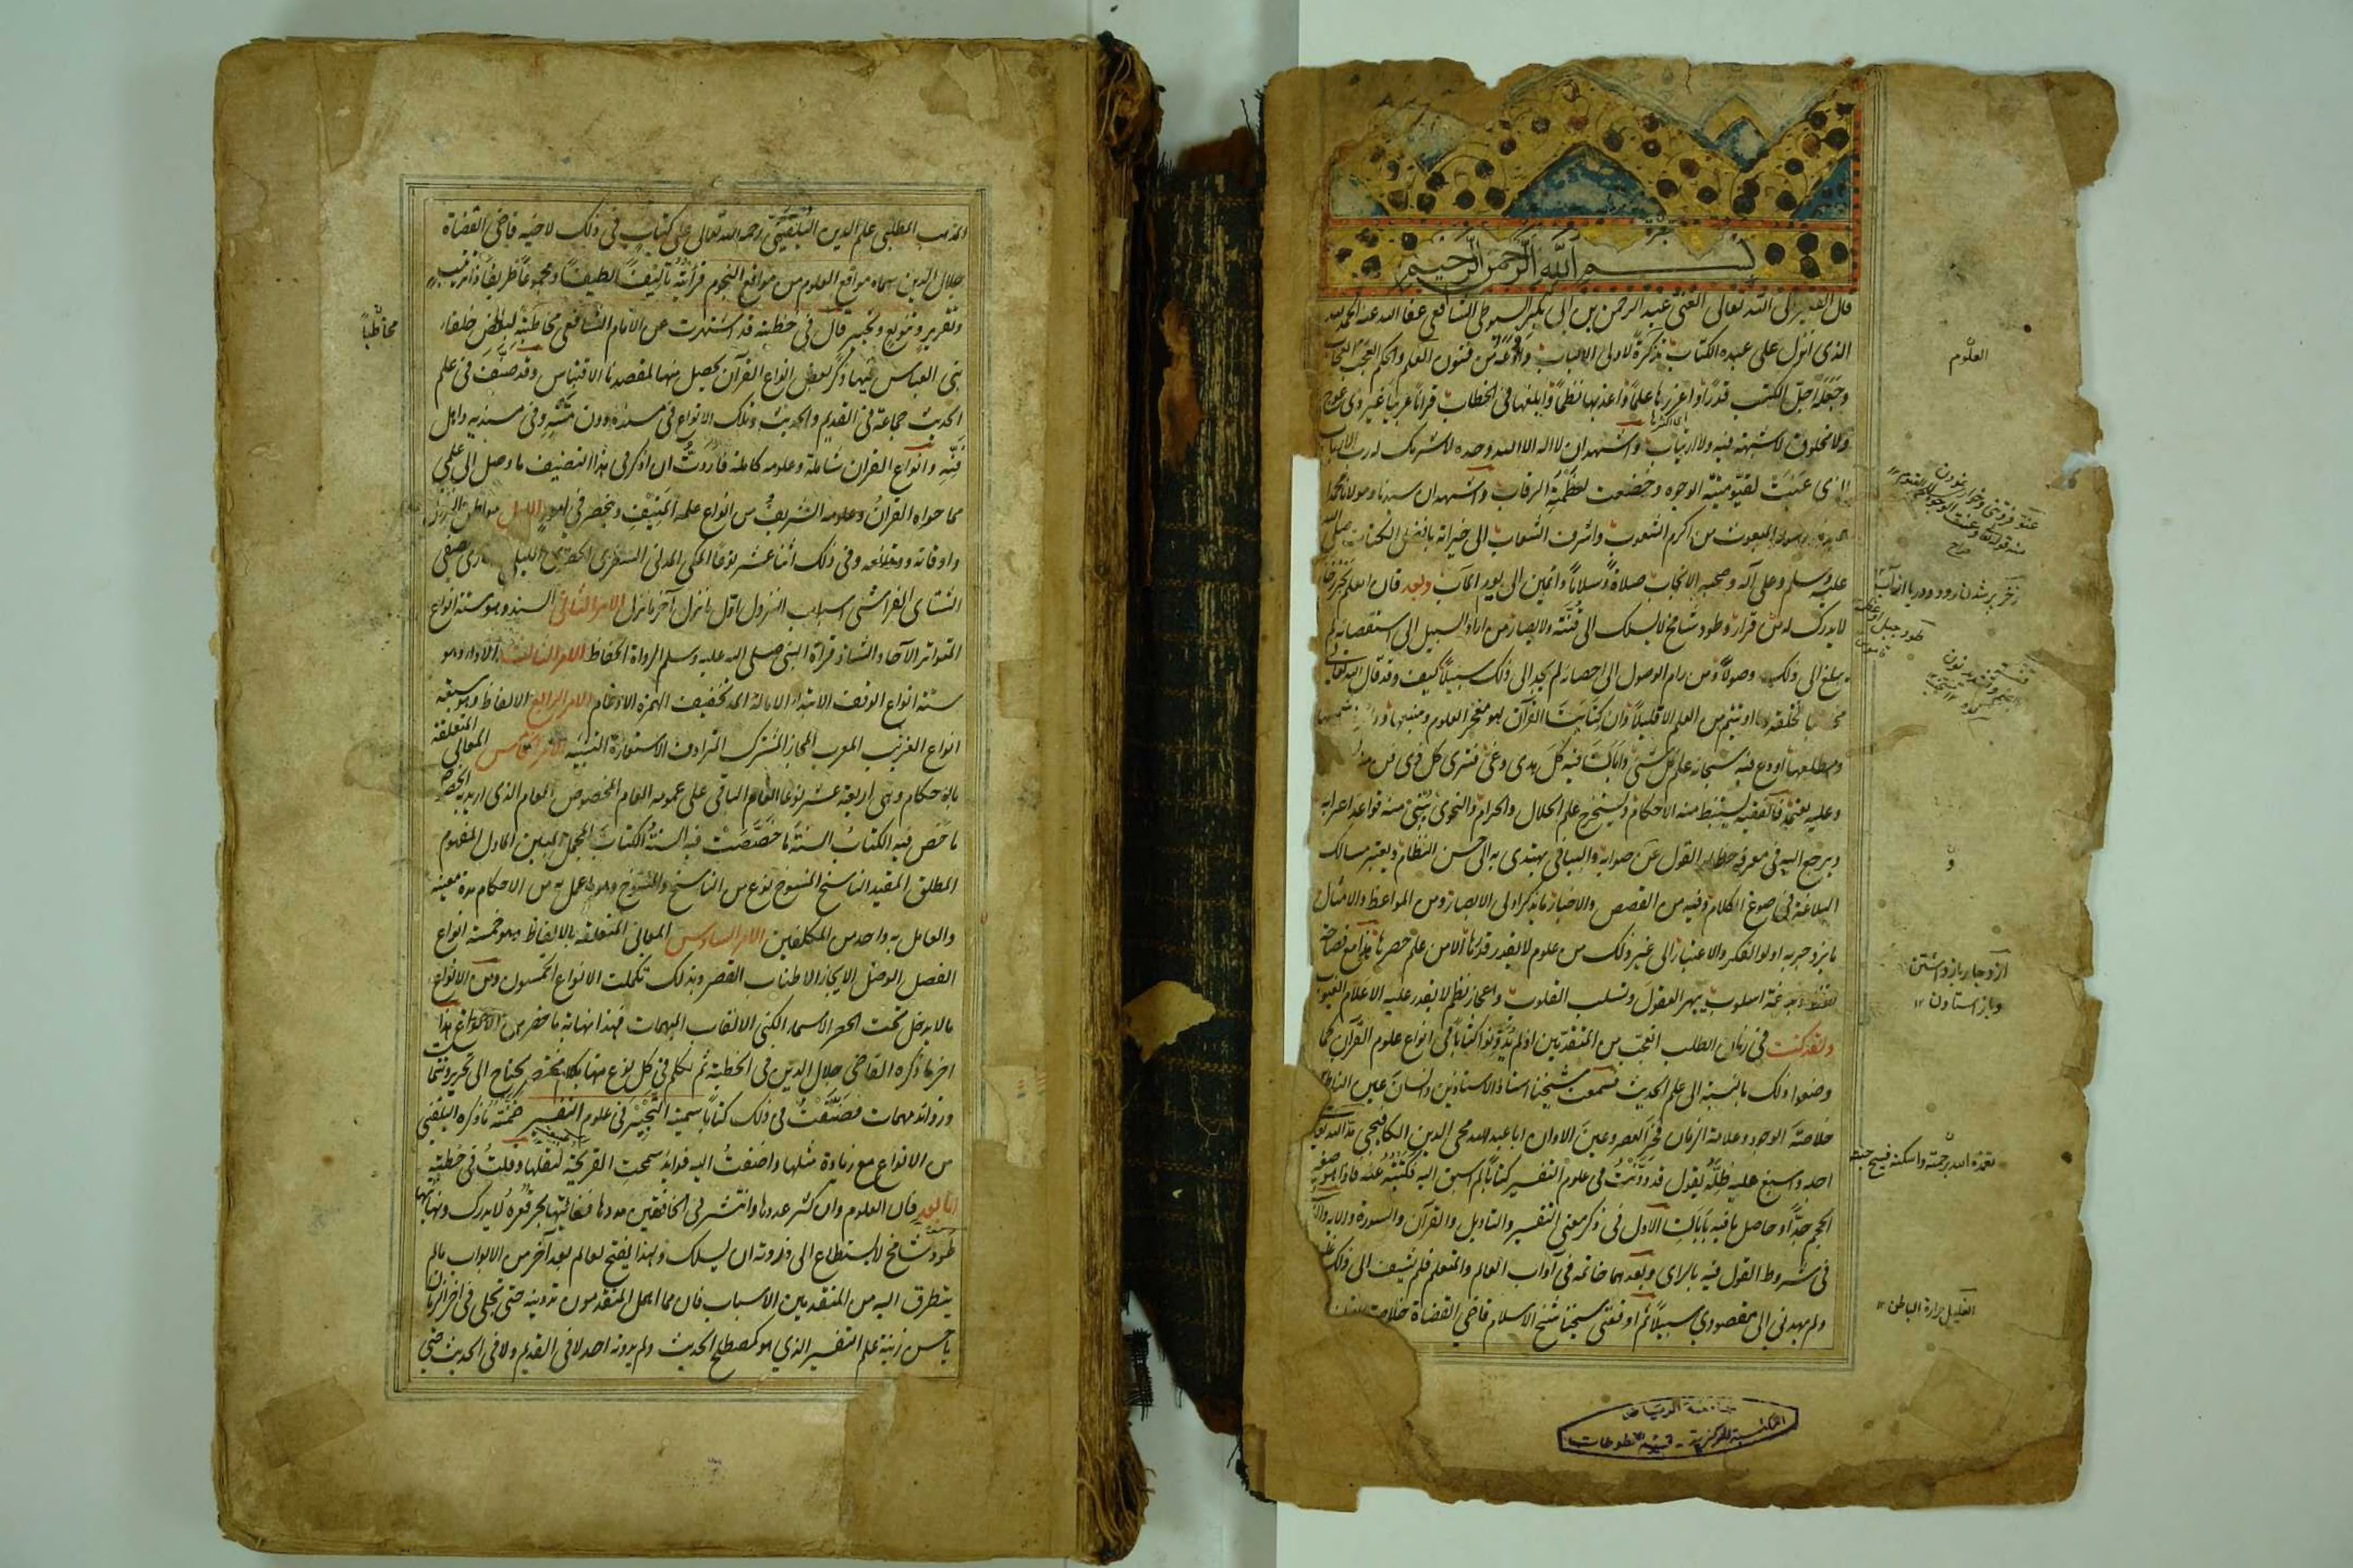 بسم الله الرحمن الرحيم
قال الفقير الى الله تعالى الغنى عبد الرحمن بن ابى بكر السيوطى الشافعى عفا الله عنه الحمد لله
الذى انزل على عبده الكتاب تذكرة لاولى الالباب واودعه من فنون العلم والحكم العجب العجاب
وجعله اجل الكتب قدرا واغزرها علما واعذبها نظما وابلغها فى الخطاب قرانا عربيا غير ذى عوج
ولا مخلوق لا شبهة فيه ولا ارتياب واشهد ان لا اله الا الله وحده لا شريك له رب الارباب
الذى عنت لقيوميته الوجوه وخضعت لعظمته الرقاب واشهد ان سيدنا ومولانا محمدا
المبعوث من اكرم الشعوب واشرف الشعاب الى خير امة بافضل الكتاب صلى الله
عليه وسلم وعلى آله وصحبه الانجاب صلاة وسلاما دائمين الى يوم المآب وبعد فان العلم بحر زخار
لا يدرك له من قرار وطود شامخ لا يسلك الى قنته ولا يصار من اراد السبيل الى استقصائه لم
يبلغ الى ذلك وصولا ومن رام الوصول الى احصائه لم يجد الى ذلك سبيلا كيف وقد قال الله تعالى
لخلقه وما اوتيتم من العلم الا قليلا وان كتابنا القرآن لهو مفجر العلوم ومنبعها ودائرة شمسها
ومطلعها اودع فيه سبحانه علم كل شئ وابان فيه كل هدى وغى فترى كل ذى فن منه
وعليه يعتمد فالفقيه يستنبط منه الاحكام ويستخرج علم الحلال والحرام والنحوى يبنى منه قواعد اعرابه
ويرجع اليه فى معرفة خطاء القول من صوابه والبيانى يهتدى به الى حسن النظام ويعتبر مسالك
البلاغة فى صوغ الكلام وفيه من القصص والاخبار ما يذكر اولى الابصار ومن المواعظ والامثال
ما يزدجر به اولوا الفكر والاعتبار الى غير ذلك من علوم لا يقدر قدرها الا من علم حصرها هذا مع فصاحة
لفظ وبلاغة اسلوب يبهر العقول وتسلب القلوب واعجاز نظم لا يقدر عليه الا علام الغيوب
ولقد كنت فى زمان الطلب اتعجب من المتقدمين اذ لم يدونوا كتابا فى انواع علوم القرآن كما
وضعوا ذلك بالنسبة الى علم الحديث فسمعت شيخنا استاذ الاستاذين وانسان عين الناظرين
خلاصة الوجود وعلامة الزمان فخر العصر وعين الاوان ابا عبد الله محى الدين الكافيجى مد الله
اجله واسبغ عليه ظله يقول قد دونت فى علوم التفسير كتابا لم اسبق اليه فكتبته عنه فاذا هو صغير
الحجم جدا وحاصل ما فيه بابان الاول فى ذكر معنى التفسير والتاويل والقرآن والسورة والاية والثانى
فى شروط القول فيه بالراى وبعدهما خاتمة فى آداب العالم والمتعلم فلم يشف الى ذلك غليلا
ولم يهدنى الى المقصود سبيلا ثم اوقفنى شيخنا شيخ الاسلام قاضى القضاة خلاصة
العلوم
عنو فروتنى وخوار نمودن
زخر پر شدن رود ودريا از آب
طود جبل
و
ازدجار باز داشتن
وباز استادن ١٢
تغمده الله برحمته واسكنه فسيح جنته
الغليل حرارة الباطن ١٢
جامعة الرياض
المكتبة المركزية - قسم المخطوطات
المذهب المطلبى علم الدين البلقينى رحمه الله تعالى على كتاب فى ذلك لاخيه قاضى القضاة
جلال الدين سماه مواقع العلوم من مواقع النجوم فرأيته تاليفا لطيفا ومجموعا ظريفا ذا ترتيب
وتقرير وتنويع وتحبير قال فى خطبته قد اشتهرت عن الامام الشافعى مخاطبة لبعض خلفاء
بنى العباس فيها ذكر بعض انواع القرآن يحصل منها لمقصدنا الاقتباس وقد صنف فى علم
الحديث جماعة فى القديم والحديث وتلك الانواع فى سنده دون متنه وفى مسنديه واهل
فنه وانواع القران شاملة وعلومه كاملة فاردت ان اذكر فى هذا التصنيف ما وصل الى علمى
مما حواه القرآن وعلومه الشريف من انواع علمه المنيف وينحصر فى امور الاول مواطن النزول
واوقاته ووقائعه وفى ذلك اثنا عشر نوعا المكى المدنى السفرى الحضرى الليلى النهارى الصيفى
الشتائى الفراشى اسباب النزول اول ما نزل آخر ما نزل الامر الثانى السند وهو ستة انواع
المتواتر الآحاد الشاذ قراءة النبى صلى الله عليه وسلم الرواة الحفاظ الامر الثالث الاداء وهو
ستة انواع الوقف الابتداء الامالة المد تخفيف الهمزة الادغام الامر الرابع الالفاظ وهو سبعة
انواع الغريب المعرب المجاز المشترك المترادف الاستعارة التشبيه الامر الخامس المعانى المتعلقة
بالاحكام وهى اربعة عشر نوعا العام الباقى على عمومه العام المخصوص العام الذى اريد به الخصوص
ما خص فيه الكتاب السنة ما خصصت فيه السنة الكتاب المجمل المبين الماول المفهوم
المطلق المقيد الناسخ المنسوخ نوع من الناسخ والمنسوخ وهو ما عمل به من الاحكام مدة معينة
والعامل به واحد من المكلفين الامر السادس المعانى المتعلقة بالالفاظ وهو خمسة انواع
الفصل الوصل الايجاز الاطناب القصر وبذلك تكملت الانواع الخمسون ومن الانواع
ما لا يدخل تحت الحصر الاسماء الكنى الالقاب المبهمات فهذا نهاية ما حضر من الانواع هذا
اخر ما ذكره القاضى جلال الدين فى الخطبة ثم تكلم فى كل نوع منها بكلام مختصر يحتاج الى تحرير وتتمات
وزوائد مهمات فصنفت فى ذلك كتابا سميته التحبير فى علوم التفسير ضمنته ما ذكره البلقينى
من الانواع مع زيادة مثلها واضفت اليه فوائد سمحت القريحة لنقلها وقلت فى خطبته
اما بعد فان العلوم وان كثر عددها وانتشر فى الخافقين مددها فغايتها بحر قعره لا يدرك ونهايتها
طود شامخ لا يستطاع الى ذروته ان يسلك ولهذا يفتح لعالم بعد آخر من الابواب ما لم
يتطرق اليه من المتقدمين الاسباب فان مما اهمل المتقدمون تدوينه حتى تحلى فى اخر الزمان
باحسن زينة علم التفسير الذي هو كمصطلح الحديث ولم يدونه احد لا فى القديم ولا فى الحديث حتى
مخاطبا